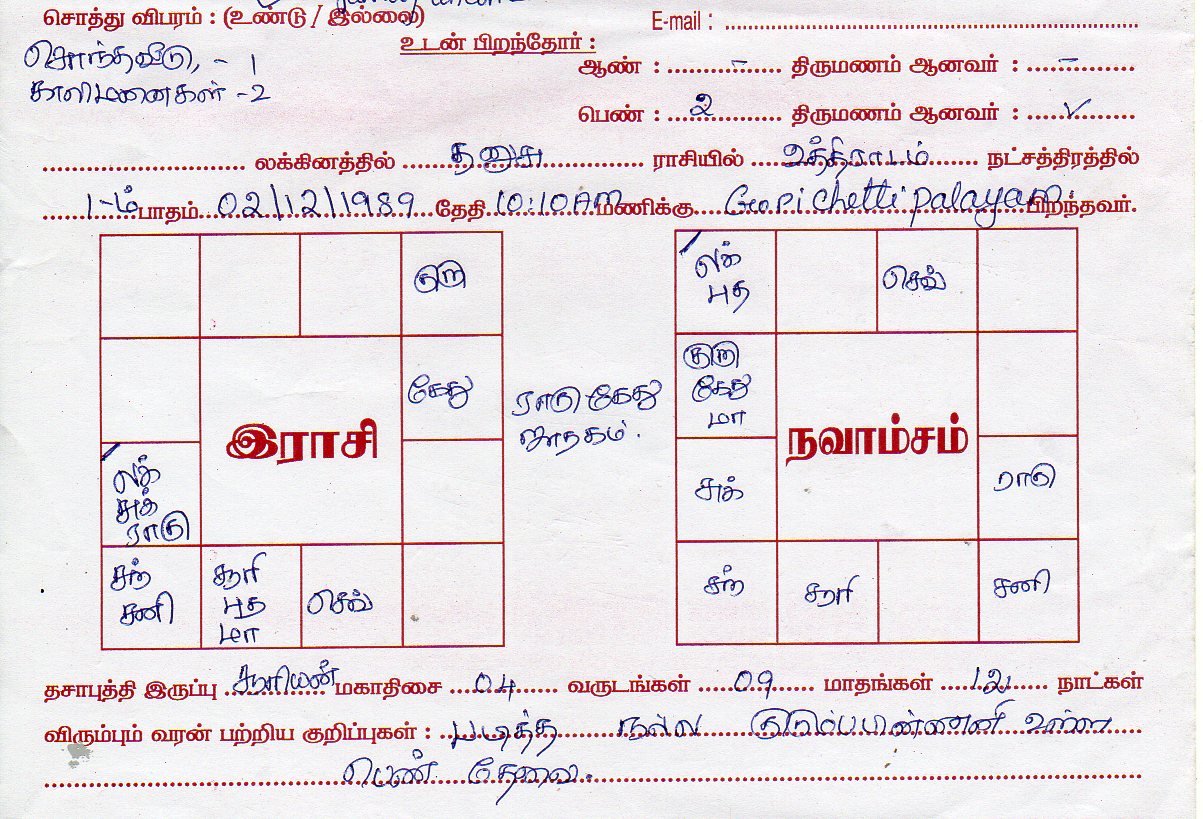 சொத்து விபரம் : (உண்டு / இல்லை)
E-mail :
உடன் பிறந்தோர் :
சொந்தவீடு, - 1
காலிமனைகள் - 2
ஆண் : – திருமணம் ஆனவர் : –
பெண் : 2 திருமணம் ஆனவர் : ✓
லக்கினத்தில் தனுசு ராசியில் உத்திராடம் நட்சத்திரத்தில்
1-ம் பாதம் 02/12/1989 தேதி 10:10AM மணிக்கு Gopichettipalayam பிறந்தவர்.
குரு
கேது
இராசி
லக்
சுக்
ராகு
சந்
சனி
சூரி
புத
மா
செவ்
ராகு கேது
ஜாதகம்.
லக்
புத
செவ்
குரு
கேது
மா
நவாம்சம்
சுக்
ராகு
சந்
சூரி
சனி
தசாபுத்தி இருப்பு சூரியன் மகாதிசை 04 வருடங்கள் 09 மாதங்கள் 12 நாட்கள்
விரும்பும் வரன் பற்றிய குறிப்புகள் : படித்த நல்ல குடும்பபின்னணி உள்ள
பெண் தேவை.